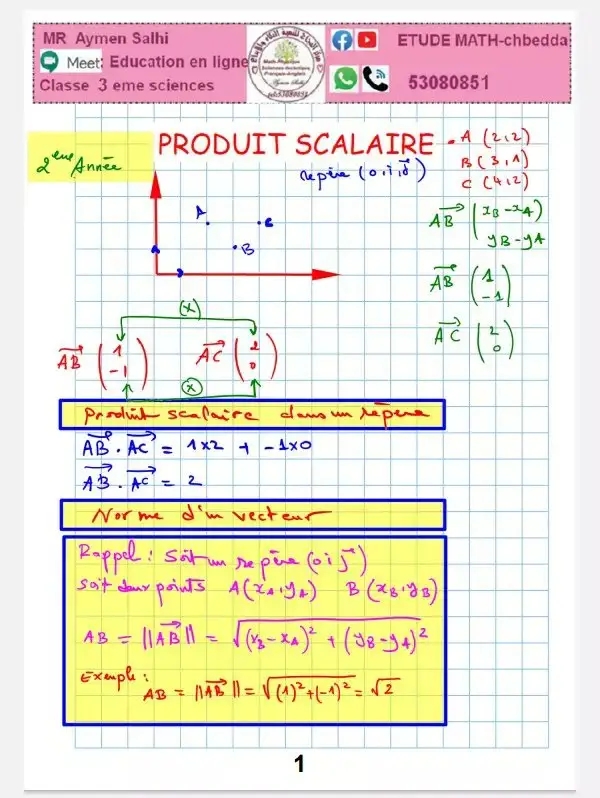 MR Aymen Salhi
Meet: Education en ligne
Classe 3 eme sciences
ETUDE MATH-chbedda
53080851
2eme Année
PRODUIT SCALAIRE
repère (o,i,j)
A (2,2)
B (3,1)
C (4,2)
A
C
B
AB (xB-xA
yB-yA)
AB (1
-1)
AC (2
0)
(x)
AB (1
-1) AC (2
0)
(x)
Produit scalaire dans un repère
AB . AC = 1x2 + -1x0
AB . AC = 2
Norme d'un vecteur
Rappel : Soit un repère (o i j)
soit deux points A(xA,yA) B(xB,yB)
AB = ||AB|| = √(xB-xA)² + (yB-yA)²
Exemple :
AB = ||AB|| = √(1)²+(-1)² = √2
1